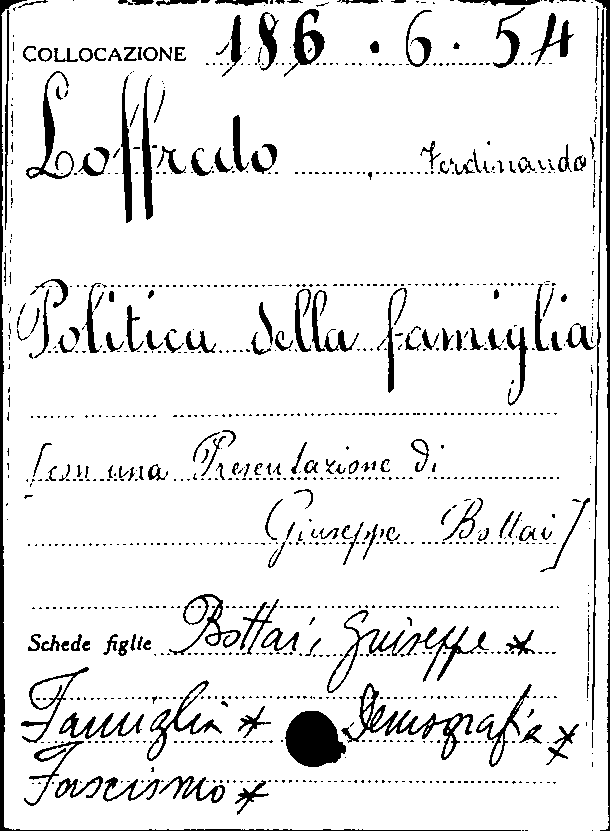 COLLOCAZIONE 186.6.54
Loffredo, Ferdinando
Politica della famiglia
[con una Presentazione di
Giuseppe Bottai]
Schede figlie Bottai, Giuseppe *
Famiglia * Demografia *
Fascismo *